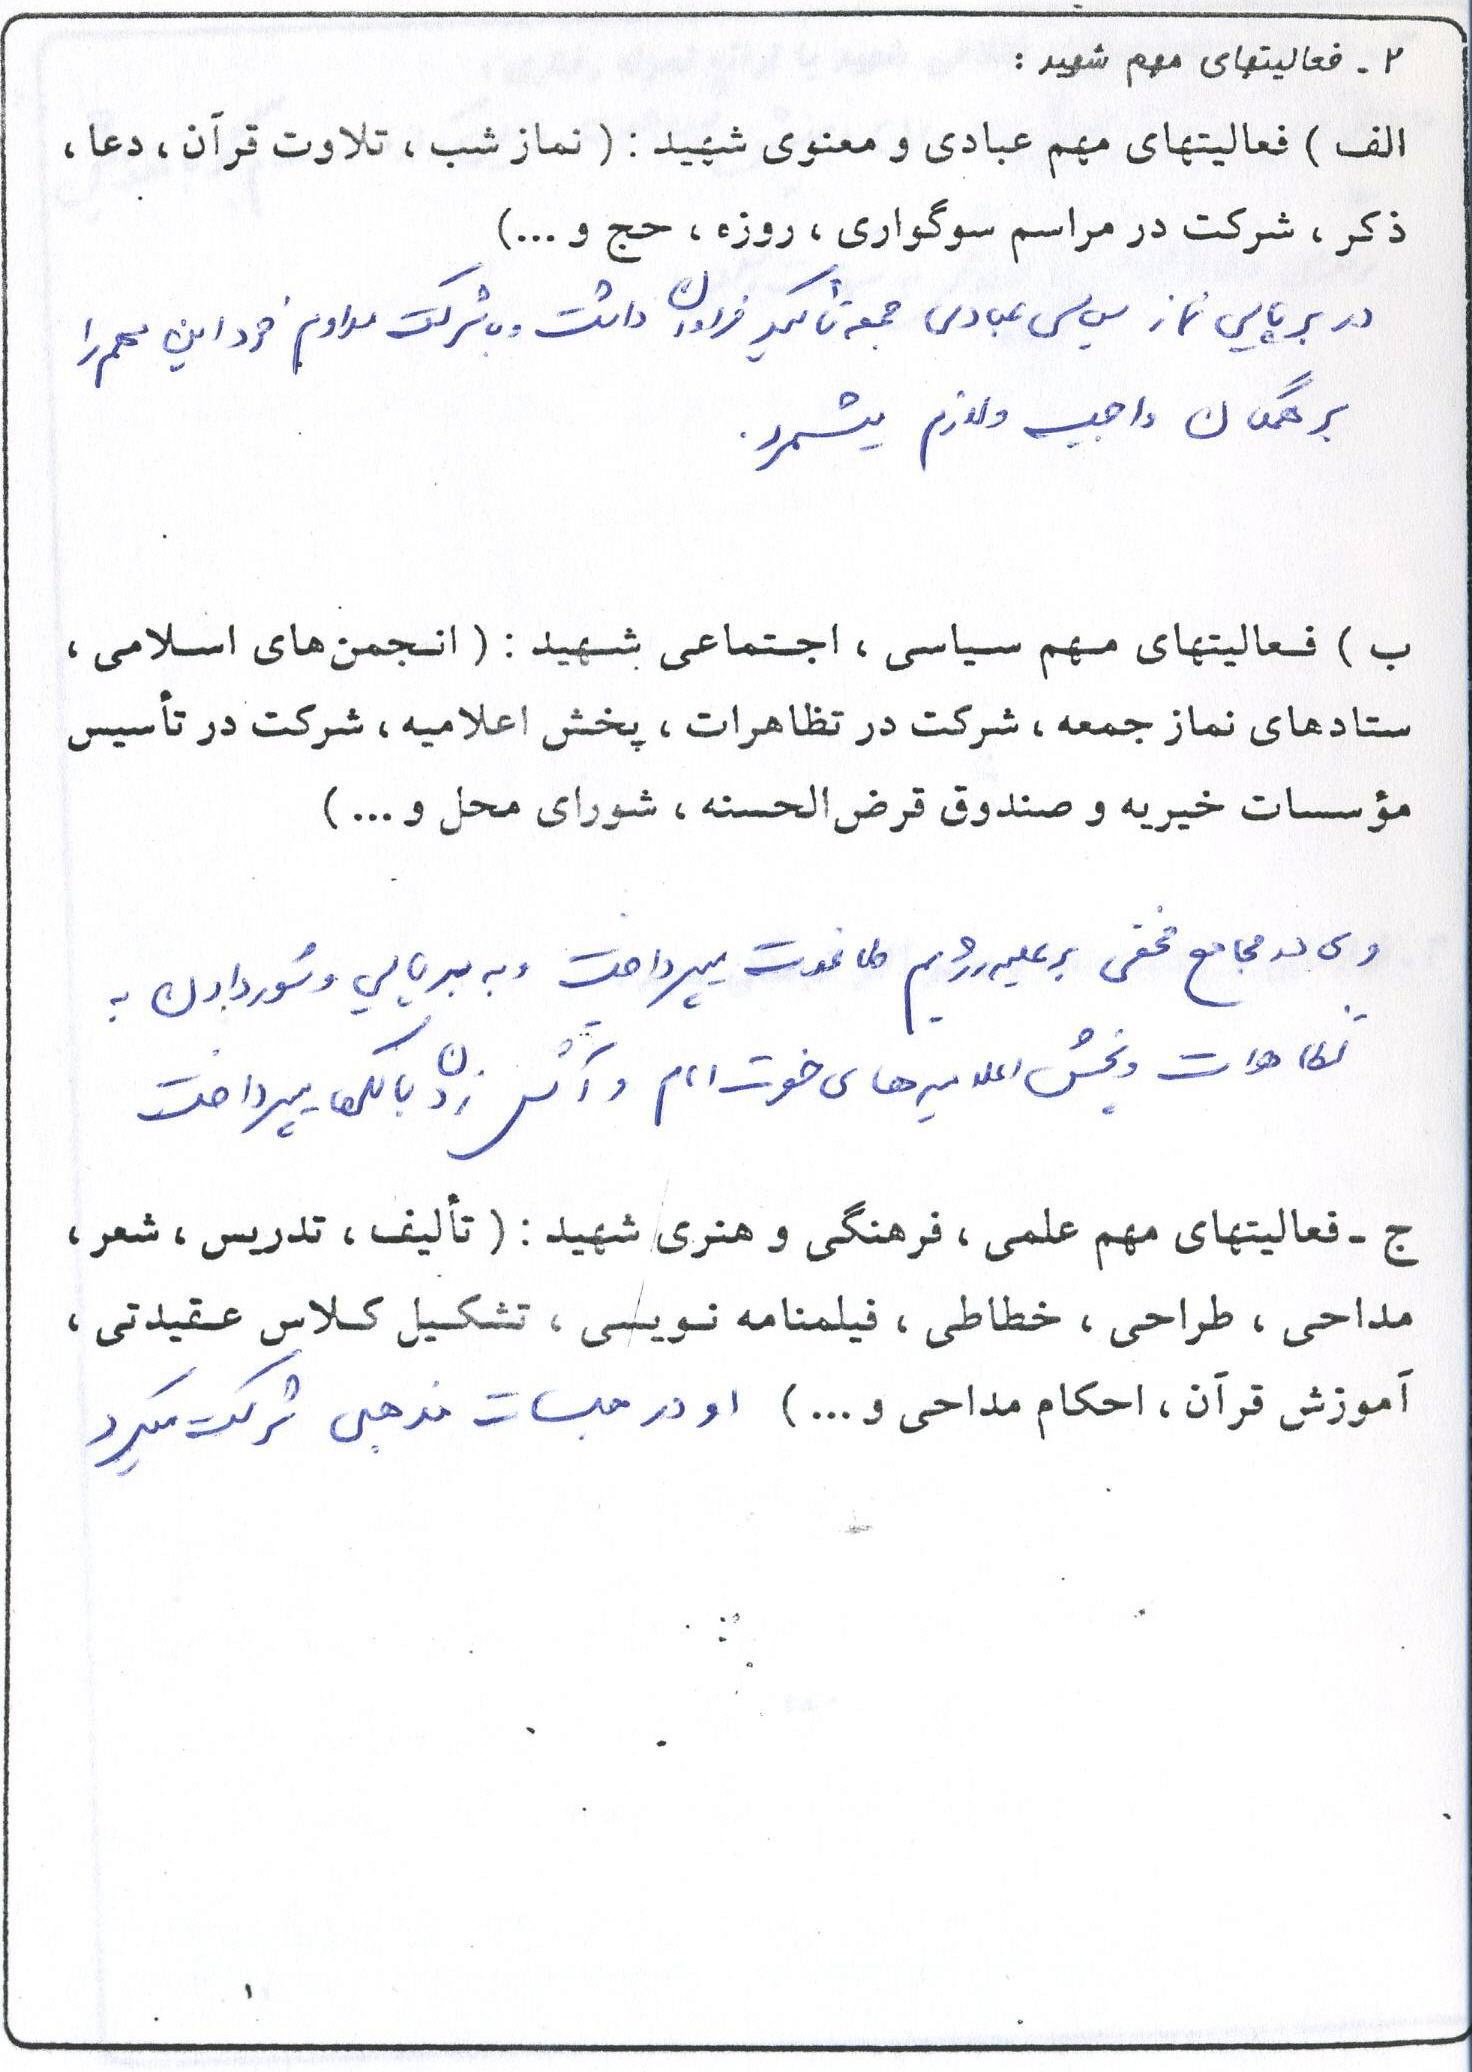 ۲ ـ فعالیتهای مهم شهید :
الف ) فعالیتهای مهم عبادی و معنوی شهید : ( نماز شب ، تلاوت قرآن ، دعا ،
ذکر ، شرکت در مراسم سوگواری ، روزه ، حج و ...)
در برپایی نماز سیاسی عبادی جمعه تأکید فراوان داشت و با شرکت مداوم خود این مهم را
بر همگان واجب و لازم میشمرد .
ب ) فعالیتهای مهم سیاسی ، اجتماعی شهید : ( انجمن‌های اسلامی ،
ستادهای نماز جمعه ، شرکت در تظاهرات ، پخش اعلامیه ، شرکت در تأسیس
مؤسسات خیریه و صندوق قرض‌الحسنه ، شورای محل و ... )
وی در مجامع مخفی بر علیه رژیم طاغوت میپرداخت و به برپایی و شور دادن به
تظاهرات و پخش اعلامیه‌های حضرت امام و آتش زدن بانکها میپرداخت
ج ـ فعالیتهای مهم علمی ، فرهنگی و هنری شهید : ( تألیف ، تدریس ، شعر ،
مداحی ، طراحی ، خطاطی ، فیلمنامه نویسی ، تشکیل کلاس عقیدتی ،
آموزش قرآن ، احکام مداحی و ... ) او در جلسات مذهبی شرکت میکرد
۱